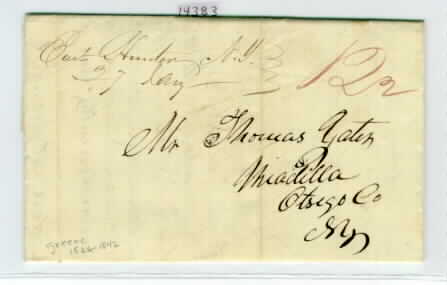 14383
East Hunter N.Y.
27 Jany
12½
Mr Thomas Yates
Unadilla
Otsego Co
NY
greene
1826-1842